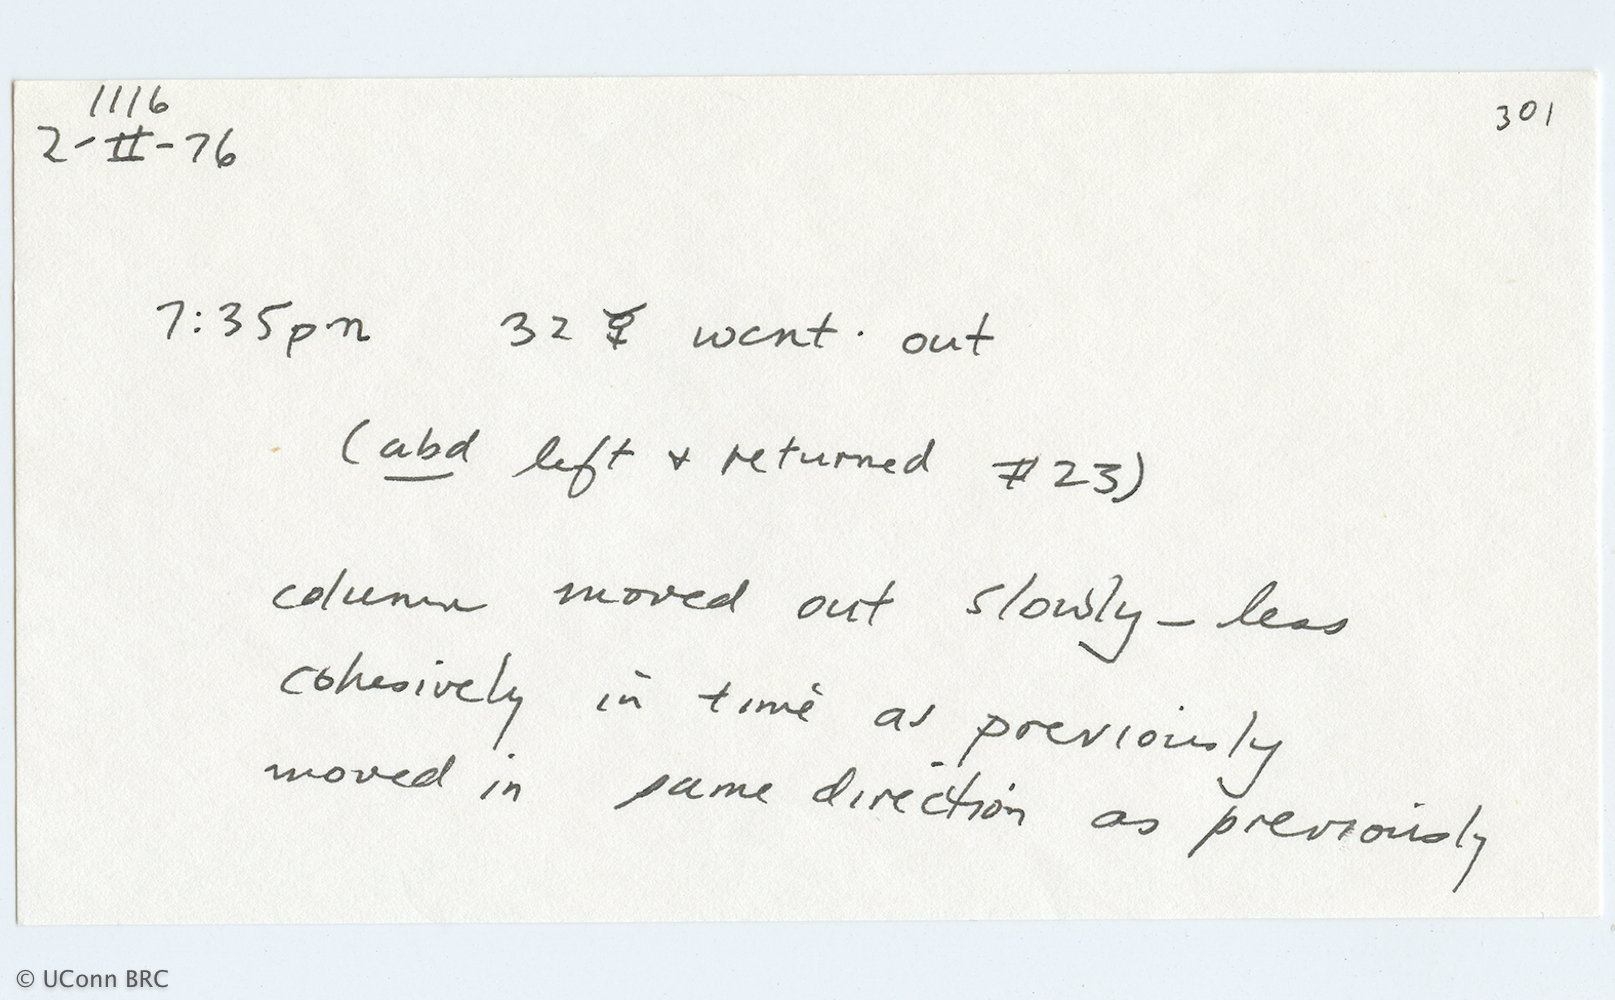 1116
2-II-76
301
7:35pm 32 ☿ went out
(abd left & returned #23)
column moved out slowly - less
cohesively in time as previously
moved in same direction as previously
© UConn BRC